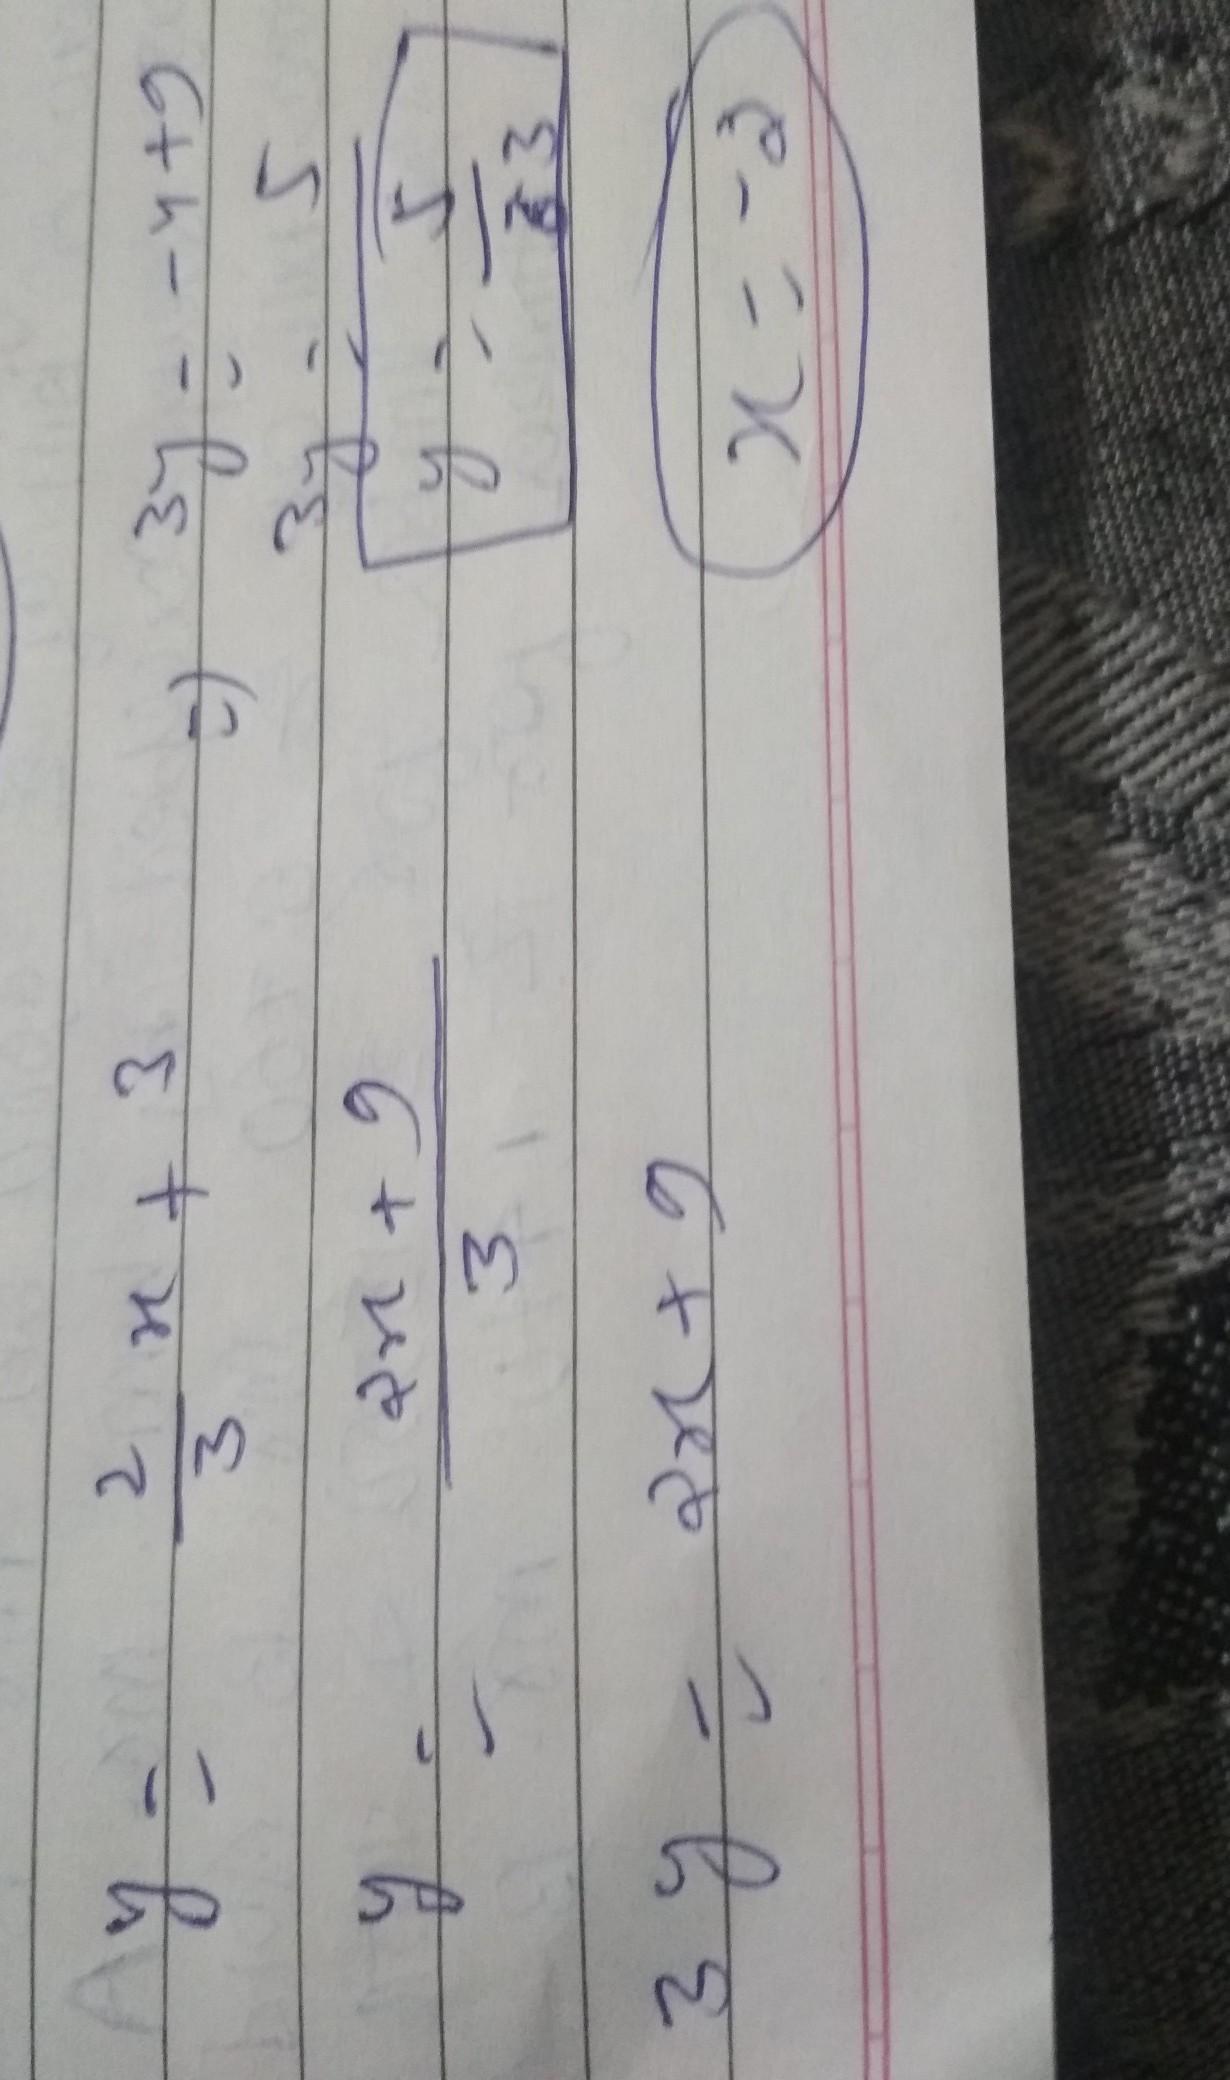 y = 2/3 x + 3
y = 2x + 9 / 3
3y = 2x + 9
3y = -4 + 9
3y = 5
y = 5/3
x = -2